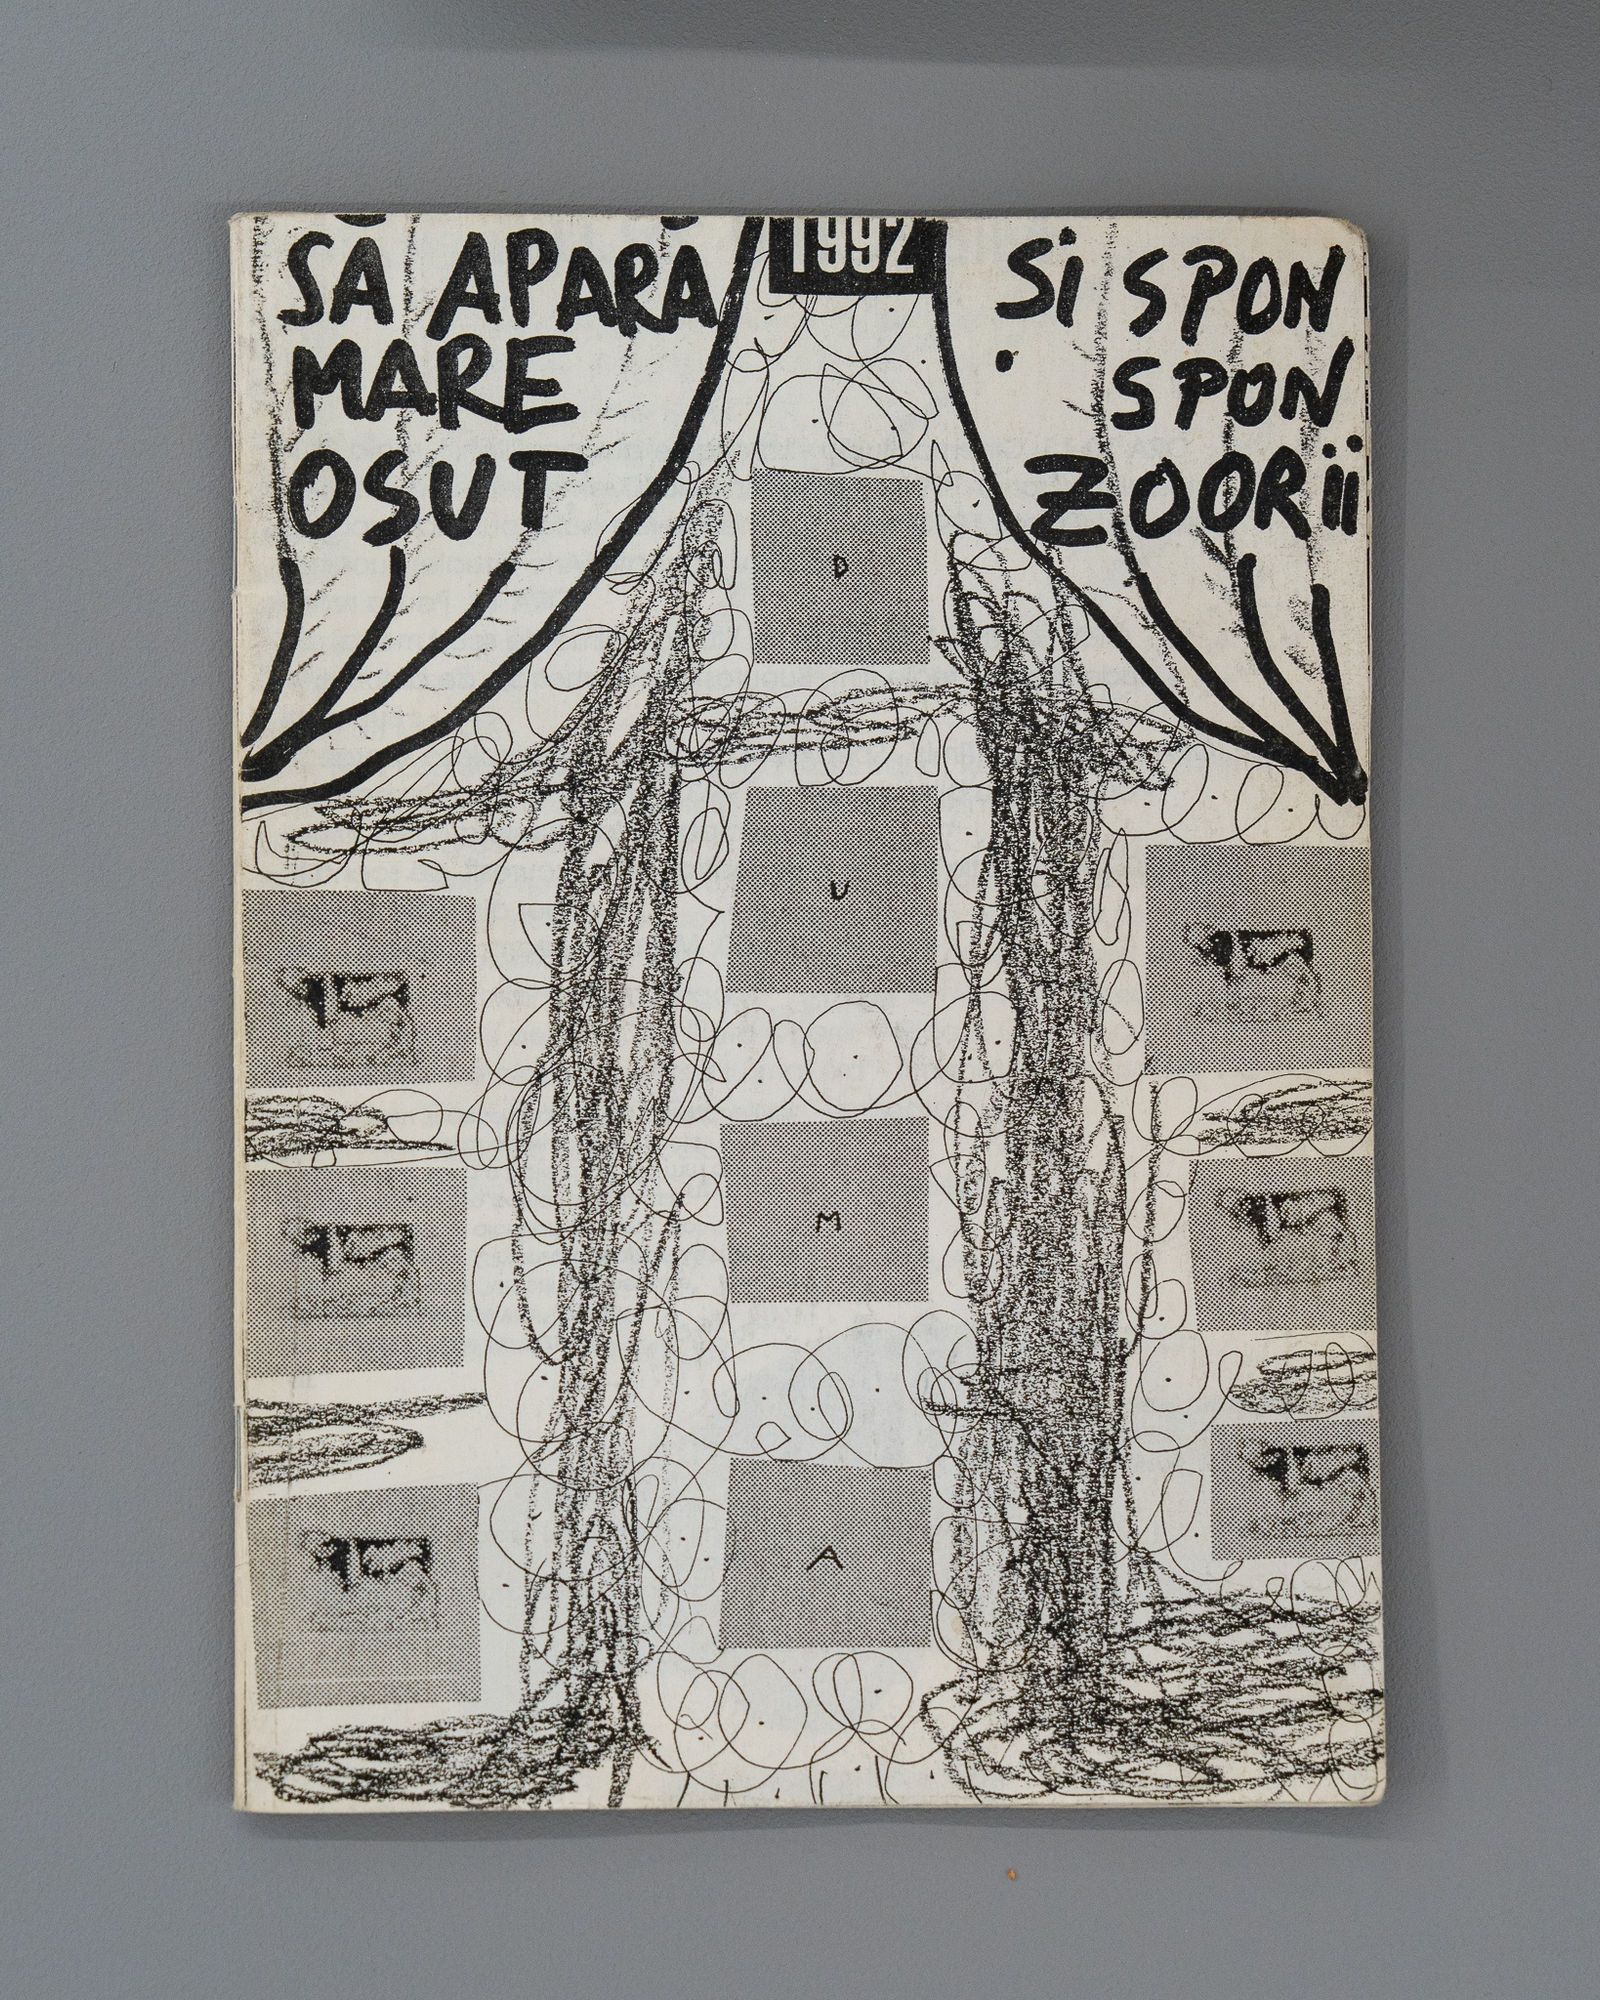 SĂ APARĂ
MARE
OSUT
1992
Si SPON
SPON
ZOORii
D
U
M
A